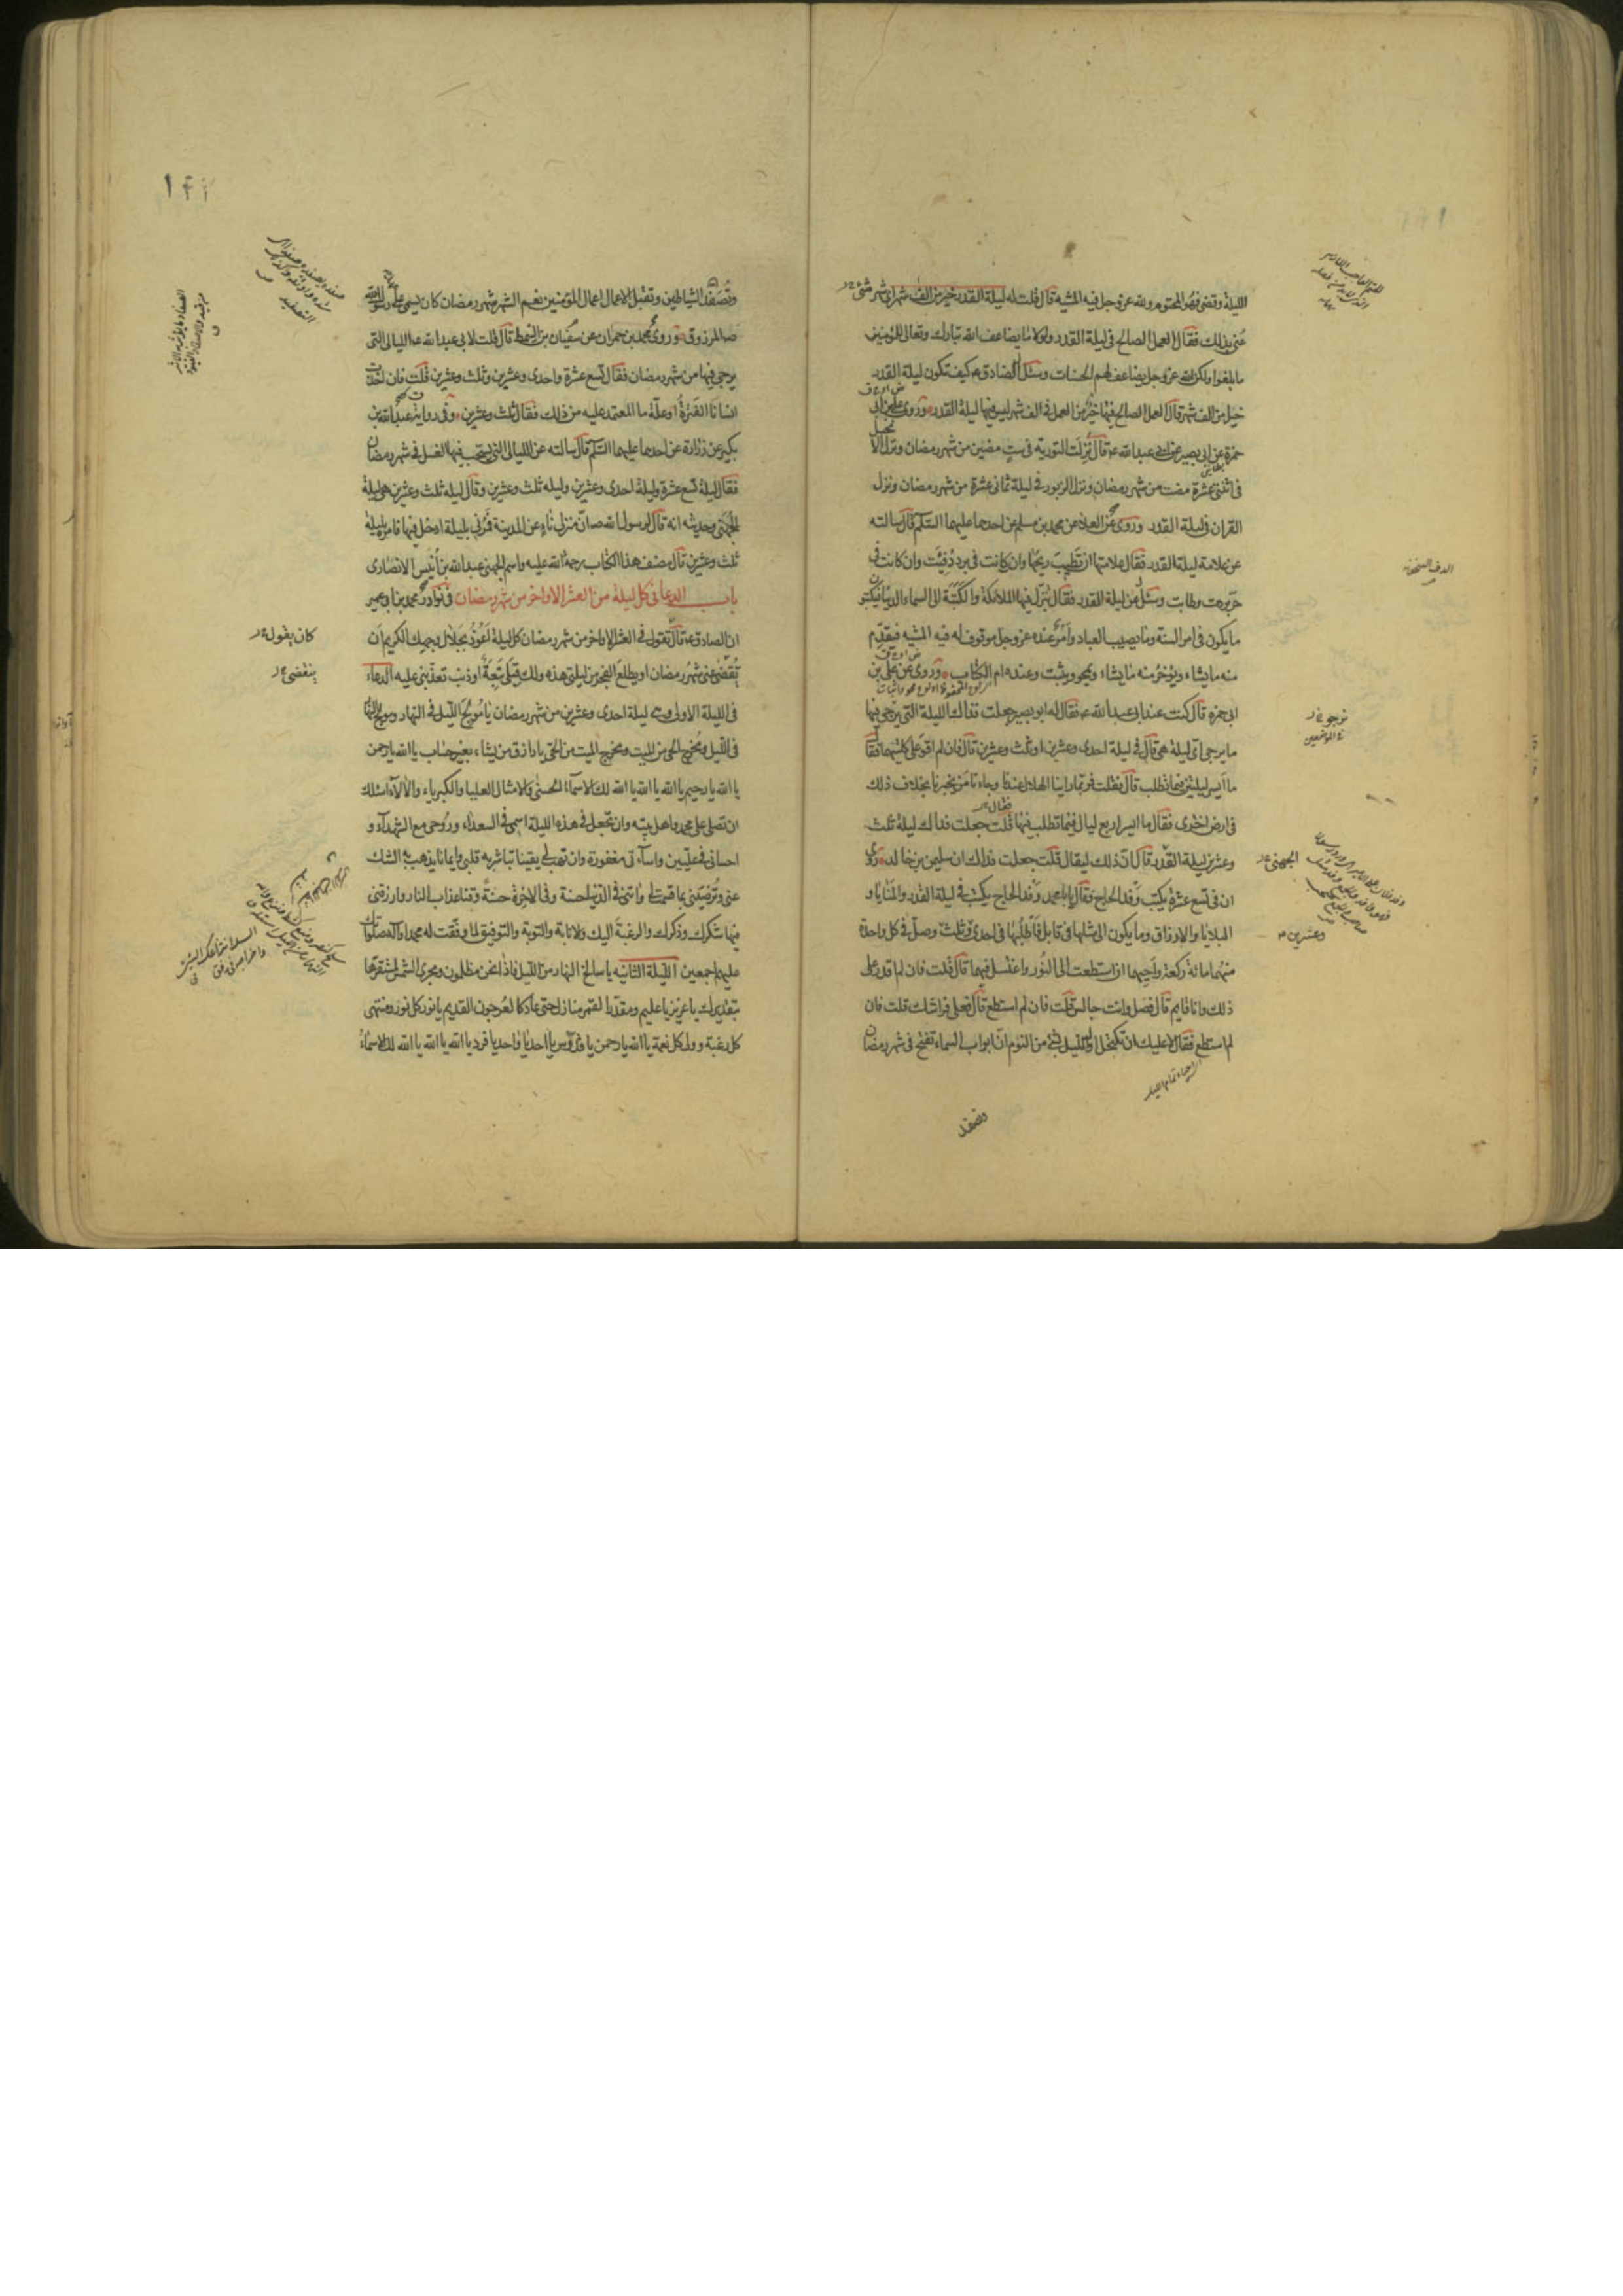 الليلة وقضى فهو المحتوم ولله عز وجل فيه المشية قال قلت له ليلة القدر خير من الف شهر اى شئ
عنى بذلك فقال العمل الصالح فى ليلة القدر ولولا ما يضاعف الله تبارك وتعالى للمؤمنين
ما بلغوا ولكن الله عز وجل يضاعف لهم الحسنات وسئل الصادق ع كيف تكون ليلة القدر
خيرا من الف شهر قال العمل الصالح فيها خير من العمل فى الف شهر ليس فيها ليلة القدر وروى على بن ابى
حمزة عن ابى بصير عن ابى عبد الله ع قال نزلت التورية فى ست مضين من شهر رمضان ونزل الانجيل
فى اثنتى عشرة مضت من شهر رمضان ونزل الزبور فى ليلة ثمانى عشرة من شهر رمضان ونزل
القران فى ليلة القدر وروى عن العلاء عن محمد بن مسلم عن احدهما عليهما السلم قال سالته
عن علامة ليلة القدر فقال علامتها ان تطيب ريحها وان كانت فى برد دفئت وان كانت فى
حر بردت وطابت وسئل عن ليلة القدر فقال تنزل فيها الملائكة والكتبة الى السماء الدنيا فيكتبون
ما يكون فى امر السنة وما يصيب العباد وامر عنده عز وجل موقوف له فيه المشية فيقدم
منه ما يشاء ويؤخر منه ما يشاء ويمحو ويثبت وعنده ام الكتاب وروى عن على بن
ابى حمزة قال كنت عند ابى عبد الله ع فقال له ابو بصير جعلت فداك الليلة التى يرجى فيها
ما يرجى اى ليلة هى قال فى ليلة احدى وعشرين او ثلث وعشرين قال فان لم اقو على كلتيهما فقال
ما ايسر ليلتين فيما تطلب قال فقلت فربما راينا الهلال عندنا وجاءنا من يخبرنا بخلاف ذلك
فى ارض اخرى فقال ما ايسر اربع ليال فيما تطلب فيها قلت جعلت فداك ليلة ثلث
وعشرين ليلة القدر قال ان ذلك ليقال قلت جعلت فداك ان سليمن بن خالد روى
ان فى تسع عشرة يكتب وفد الحاج فقال يا ابا محمد وفد الحاج يكتب فى ليلة القدر والمنايا و
البلايا والارزاق وما يكون الى مثلها فى قابل فاطلبها فى احدى وثلث وصل فى كل واحدة
منهما مائة ركعة واحيهما ان استطعت الى النور واغتسل فيهما قال قلت فان لم اقدر على
ذلك وانا قايم قال فصل وانت جالس قلت فان لم استطع قال فعلى فراشك قلت فان
لم استطع فقال لا عليك ان تكتحل اول الليل بشئ من النوم ان ابواب السماء تفتح فى شهر رمضان
وتصفد
الجهنى
وعشرين
وتصفد الشياطين وتقبل الاعمال اعمال المؤمنين نعم الشهر شهر رمضان كان يسمى على عهد رسول الله
ص المرزوق وروى محمد بن حمران عن سفيان بن السمط قال قلت لابى عبد الله ع الليالى التى
يرجى فيها من شهر رمضان فقال تسع عشرة واحدى وعشرين وثلث وعشرين قلت فان اخذت
انسانا الفترة او علة ما المعتمد عليه من ذلك فقال ثلث وعشرين وفى رواية عبد الله بن
بكير عن زرارة عن احدهما عليهما السلم قال سالته عن الليالى التى يستحب فيها الغسل فى شهر رمضان
فقال ليلة تسع عشرة وليلة احدى وعشرين وليلة ثلث وعشرين وقال ليلة ثلث وعشرين هى ليلة
الجهنى وحديثه انه قال لرسول الله ص ان منزلى ناء عن المدينة فمرنى بليلة ادخل فيها فامره بليلة
ثلث وعشرين قال مصنف هذا الكتاب رحمة الله عليه واسم الجهنى عبد الله بن انيس الانصارى
باب الدعا فى كل ليلة من العشر الاواخر من شهر رمضان فى نوادر محمد بن ابى عمير
ان الصادق ع قال تقول فى العشر الاواخر من شهر رمضان كل ليلة اعوذ بجلال وجهك الكريم ان
كان يقول
ينقضى
تقضى عنى شهر رمضان او يطلع الفجر من ليلتى هذه ولك قبلى تبعة او ذنب تعذبنى عليه الدعاء
فى الليلة الاولى وهى ليلة احدى وعشرين من شهر رمضان يا مولج الليل فى النهار ومولج النهار
فى الليل ومخرج الحى من الميت ومخرج الميت من الحى يا رازق من يشاء بغير حساب يا الله يا رحمن
يا الله يا رحيم يا الله يا الله يا الله لك الاسماء الحسنى والامثال العليا والكبرياء والالآء اسئلك
ان تصلى على محمد واهل بيته وان تجعل فى هذه الليلة اسمى فى السعداء وروحى مع الشهداء و
احسانى فى عليين واساءتى مغفورة وان تهب لى يقينا تباشر به قلبى وايمانا يذهب به الشك
عنى وترضينى بما قسمت لى واتنى فى الدنيا حسنة وفى الاخرة حسنة وقنا عذاب النار وارزقنى
فيها شكرك وذكرك والرغبة اليك والانابة والتوبة والتوفيق لما وفقت له محمدا وآله صلواتك
عليهم اجمعين الليلة الثانية يا سالخ النهار من الليل فاذا نحن مظلمون ومجرى الشمس لمستقرها
بتقديرك يا عزيز يا عليم ومقدر القمر منازل حتى عاد كالعرجون القديم يا نور كل نور ومنتهى
كل رغبة وولى كل نعمة يا الله يا رحمن يا قدوس يا احد يا واحد يا فرد يا الله يا الله يا الله لك الاسماء